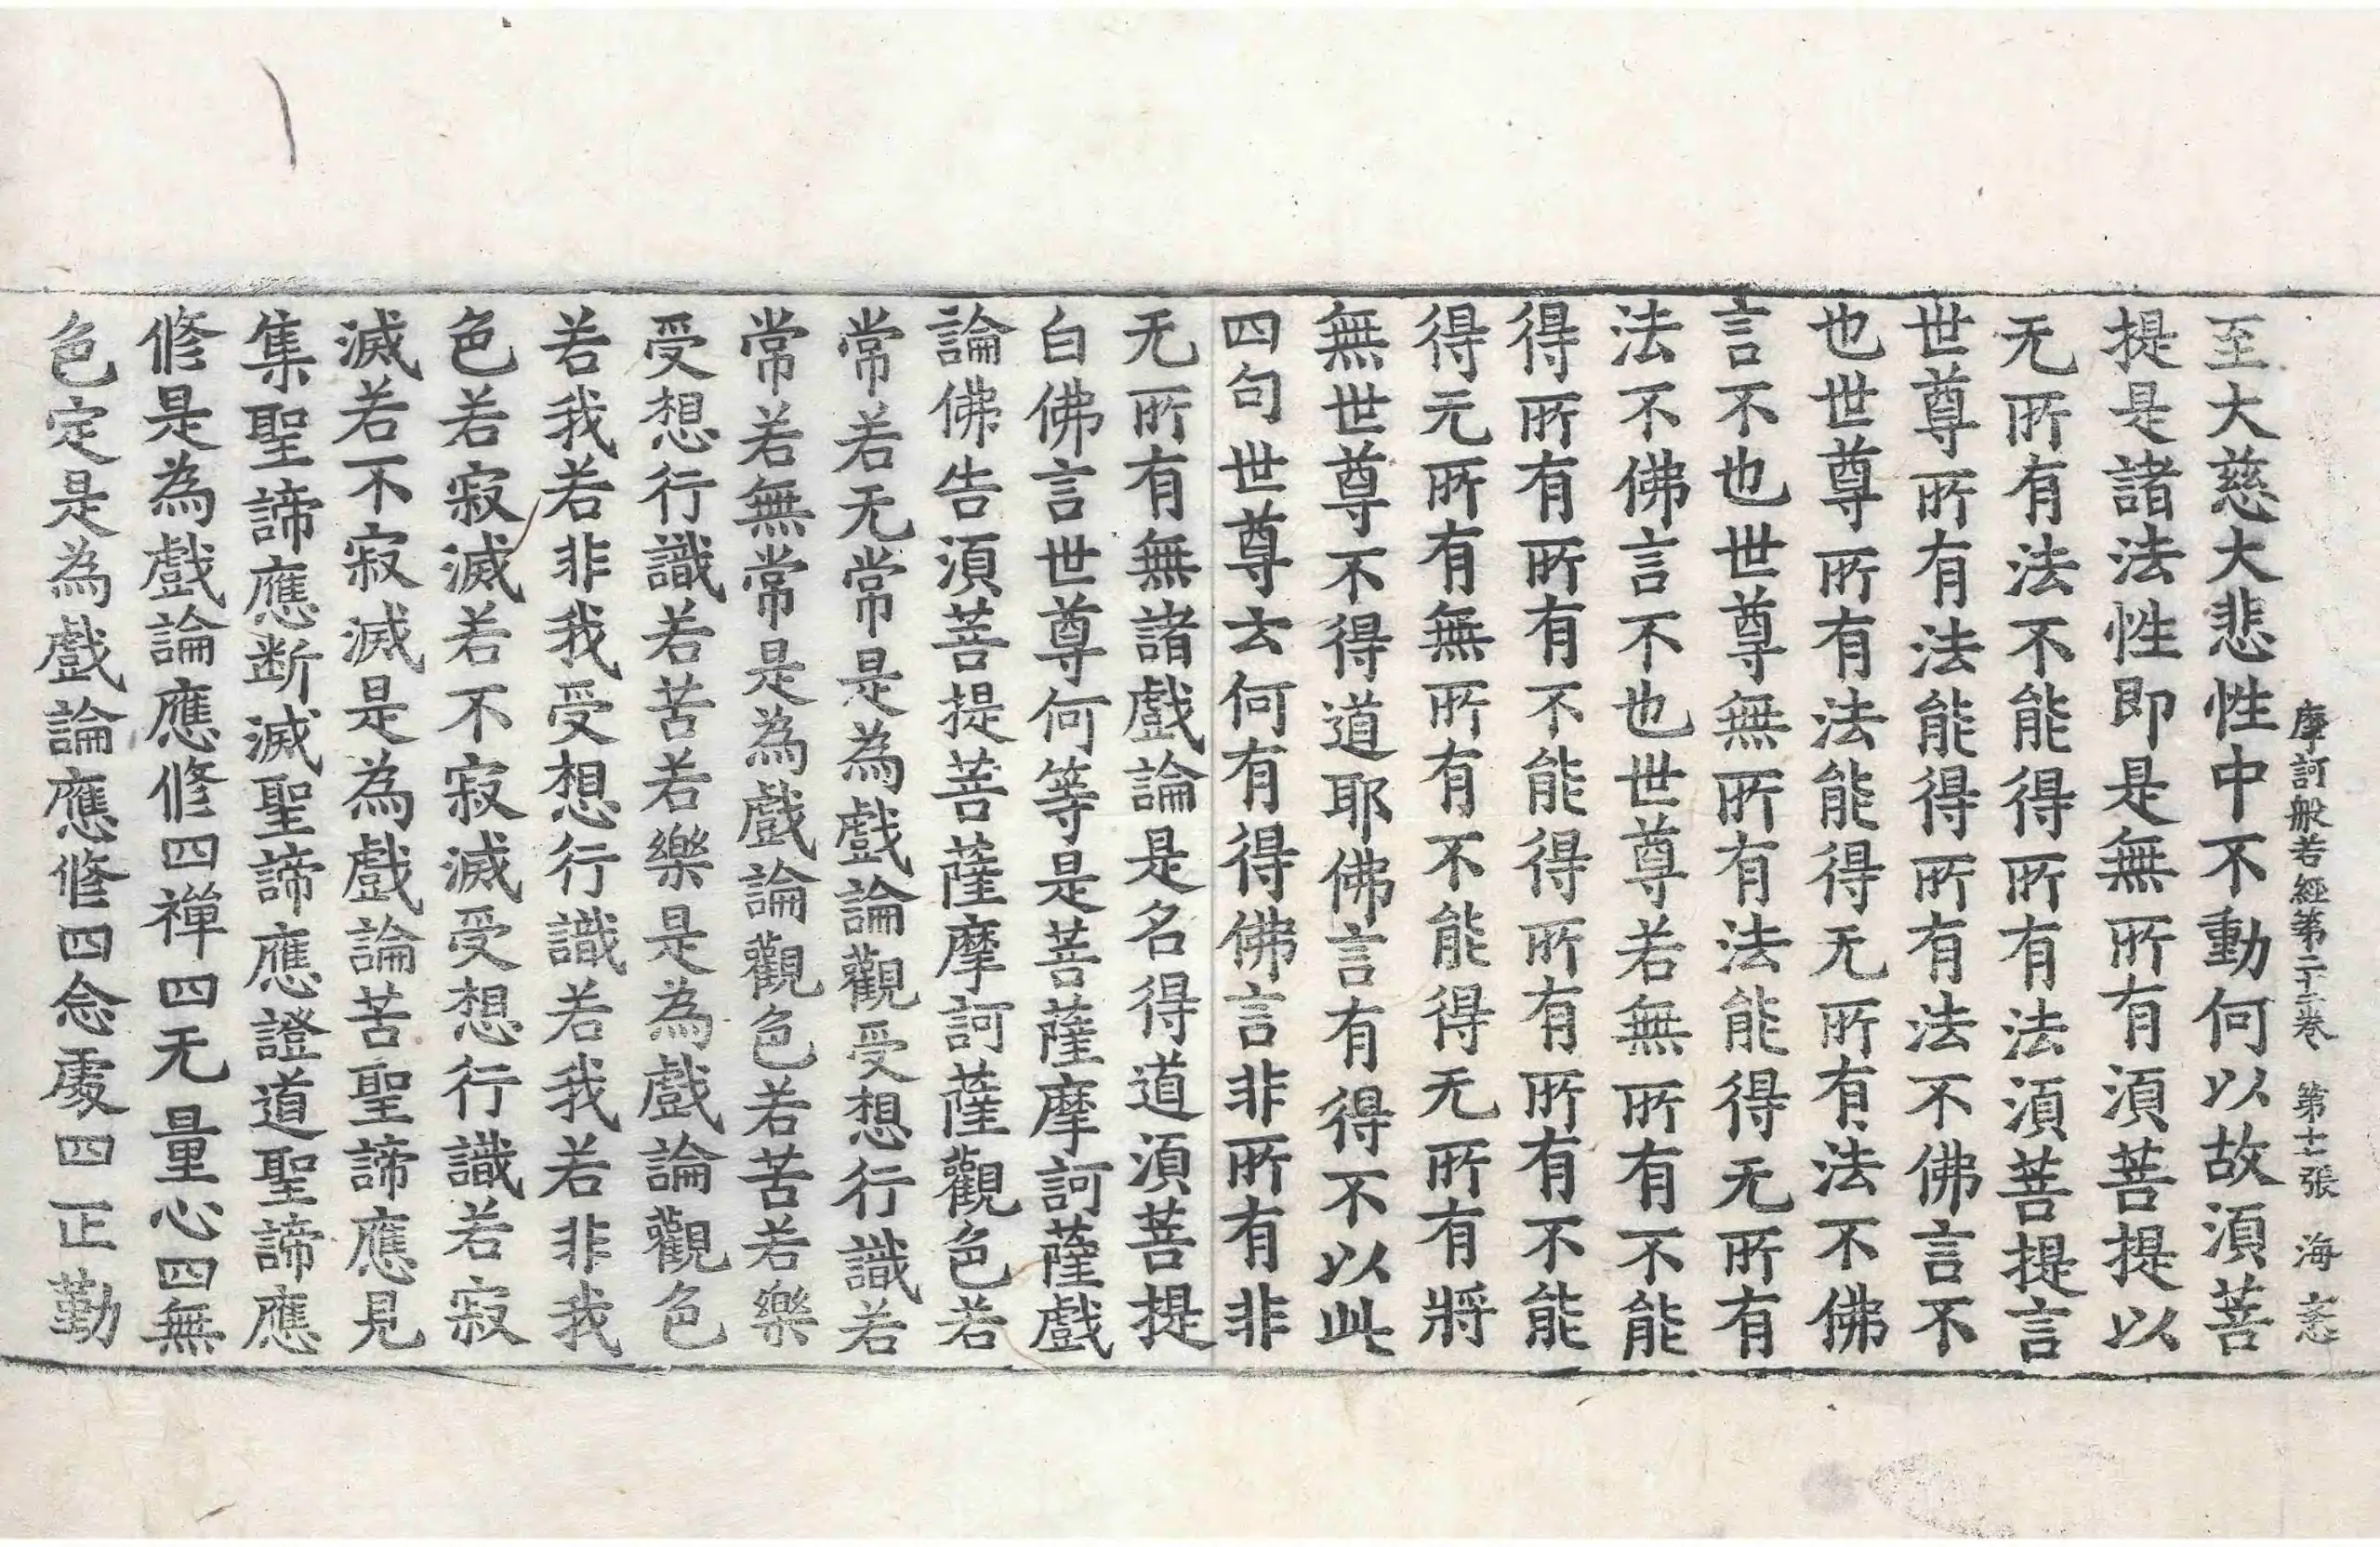 摩訶般若經第二十二卷 第十七張 海 志
至大慈大悲性中不動何以故須菩
提是諸法性即是無所有須菩提以
无所有法不能得所有法須菩提言
世尊所有法能得所有法不佛言不
也世尊所有法能得无所有法不佛
言不也世尊無所有法能得无所有
法不佛言不也世尊若無所有不能
得所有所有不能得所有所有不能
得无所有無所有不能得无所有將
無世尊不得道耶佛言有得不以此
四句世尊云何有得佛言非所有非
无所有無諸戲論是名得道須菩提
白佛言世尊何等是菩薩摩訶薩戲
論佛告須菩提菩薩摩訶薩觀色若
常若无常是為戲論觀受想行識若
常若無常是為戲論觀色若苦若樂
受想行識若苦若樂是為戲論觀色
若我若非我受想行識若我若非我
色若寂滅若不寂滅受想行識若寂
滅若不寂滅是為戲論苦聖諦應見
集聖諦應断滅聖諦應證道聖諦應
修是為戲論應修四禪四无量心四無
色定是為戲論應修四念處四正勤